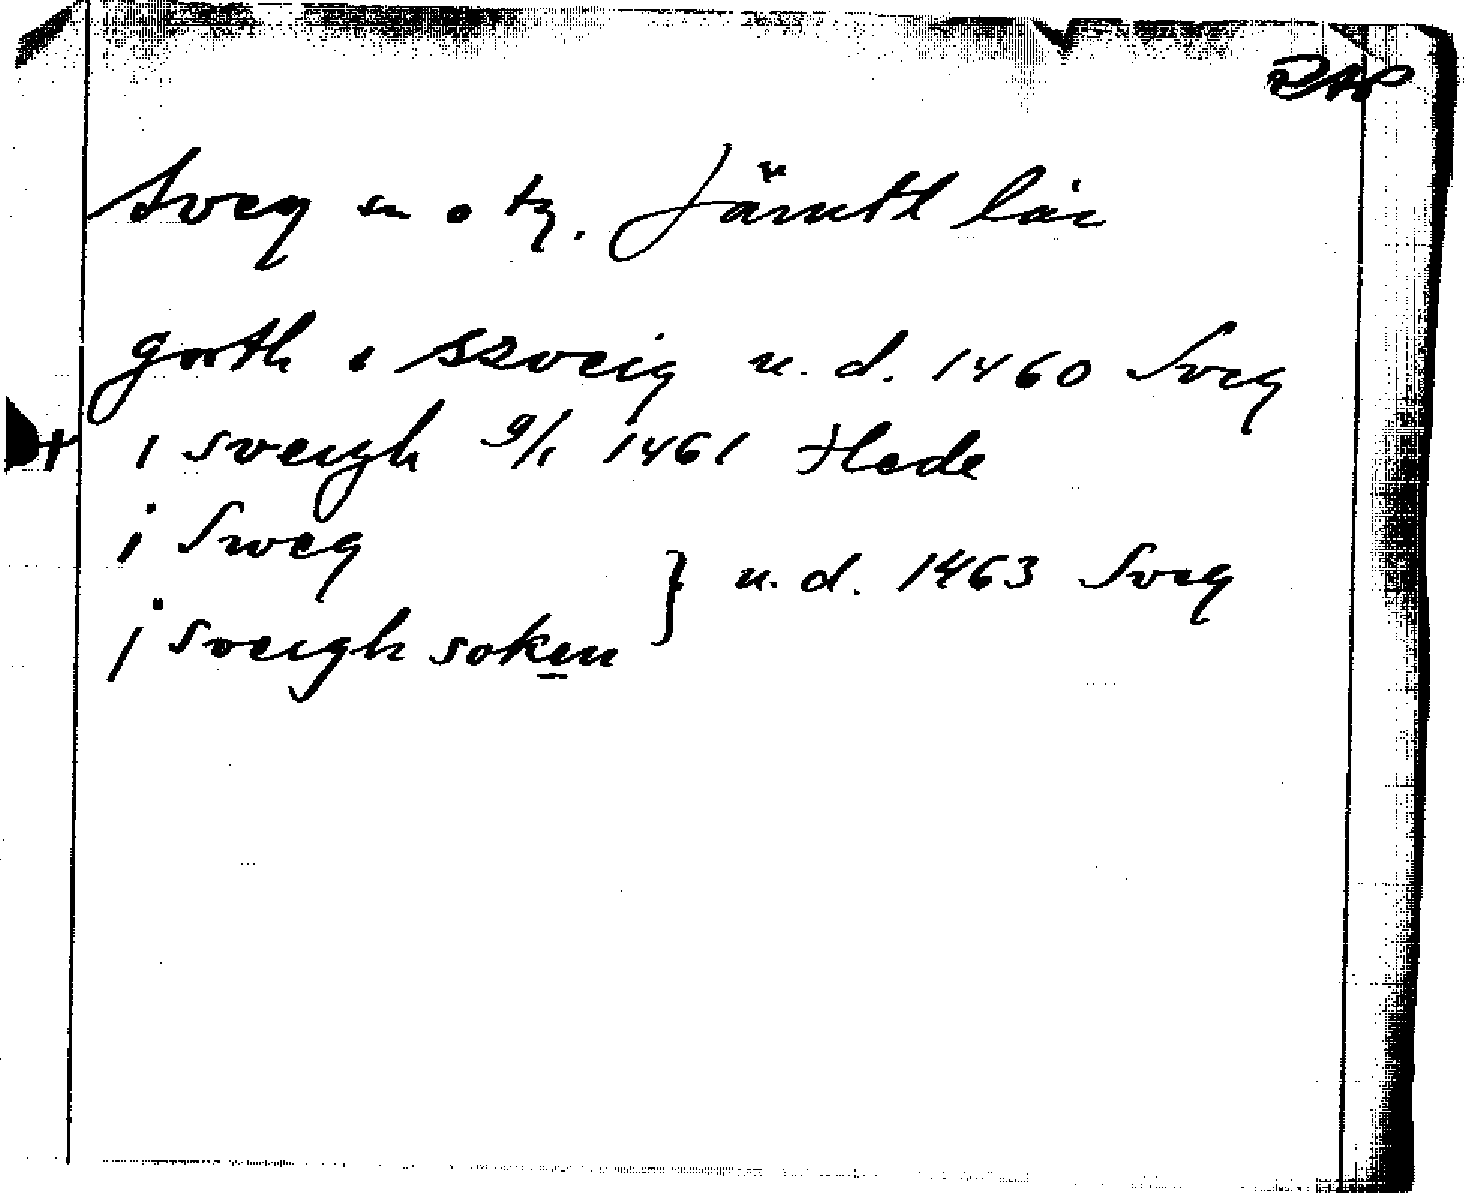 RAP
Sveg sn o tg. Jämtl län
goth i szveig u. d. 1460 Sveg
i sveigh 9/1 1461 Hede
i Sweg
j sveigh soken } u. d. 1463 Sveg